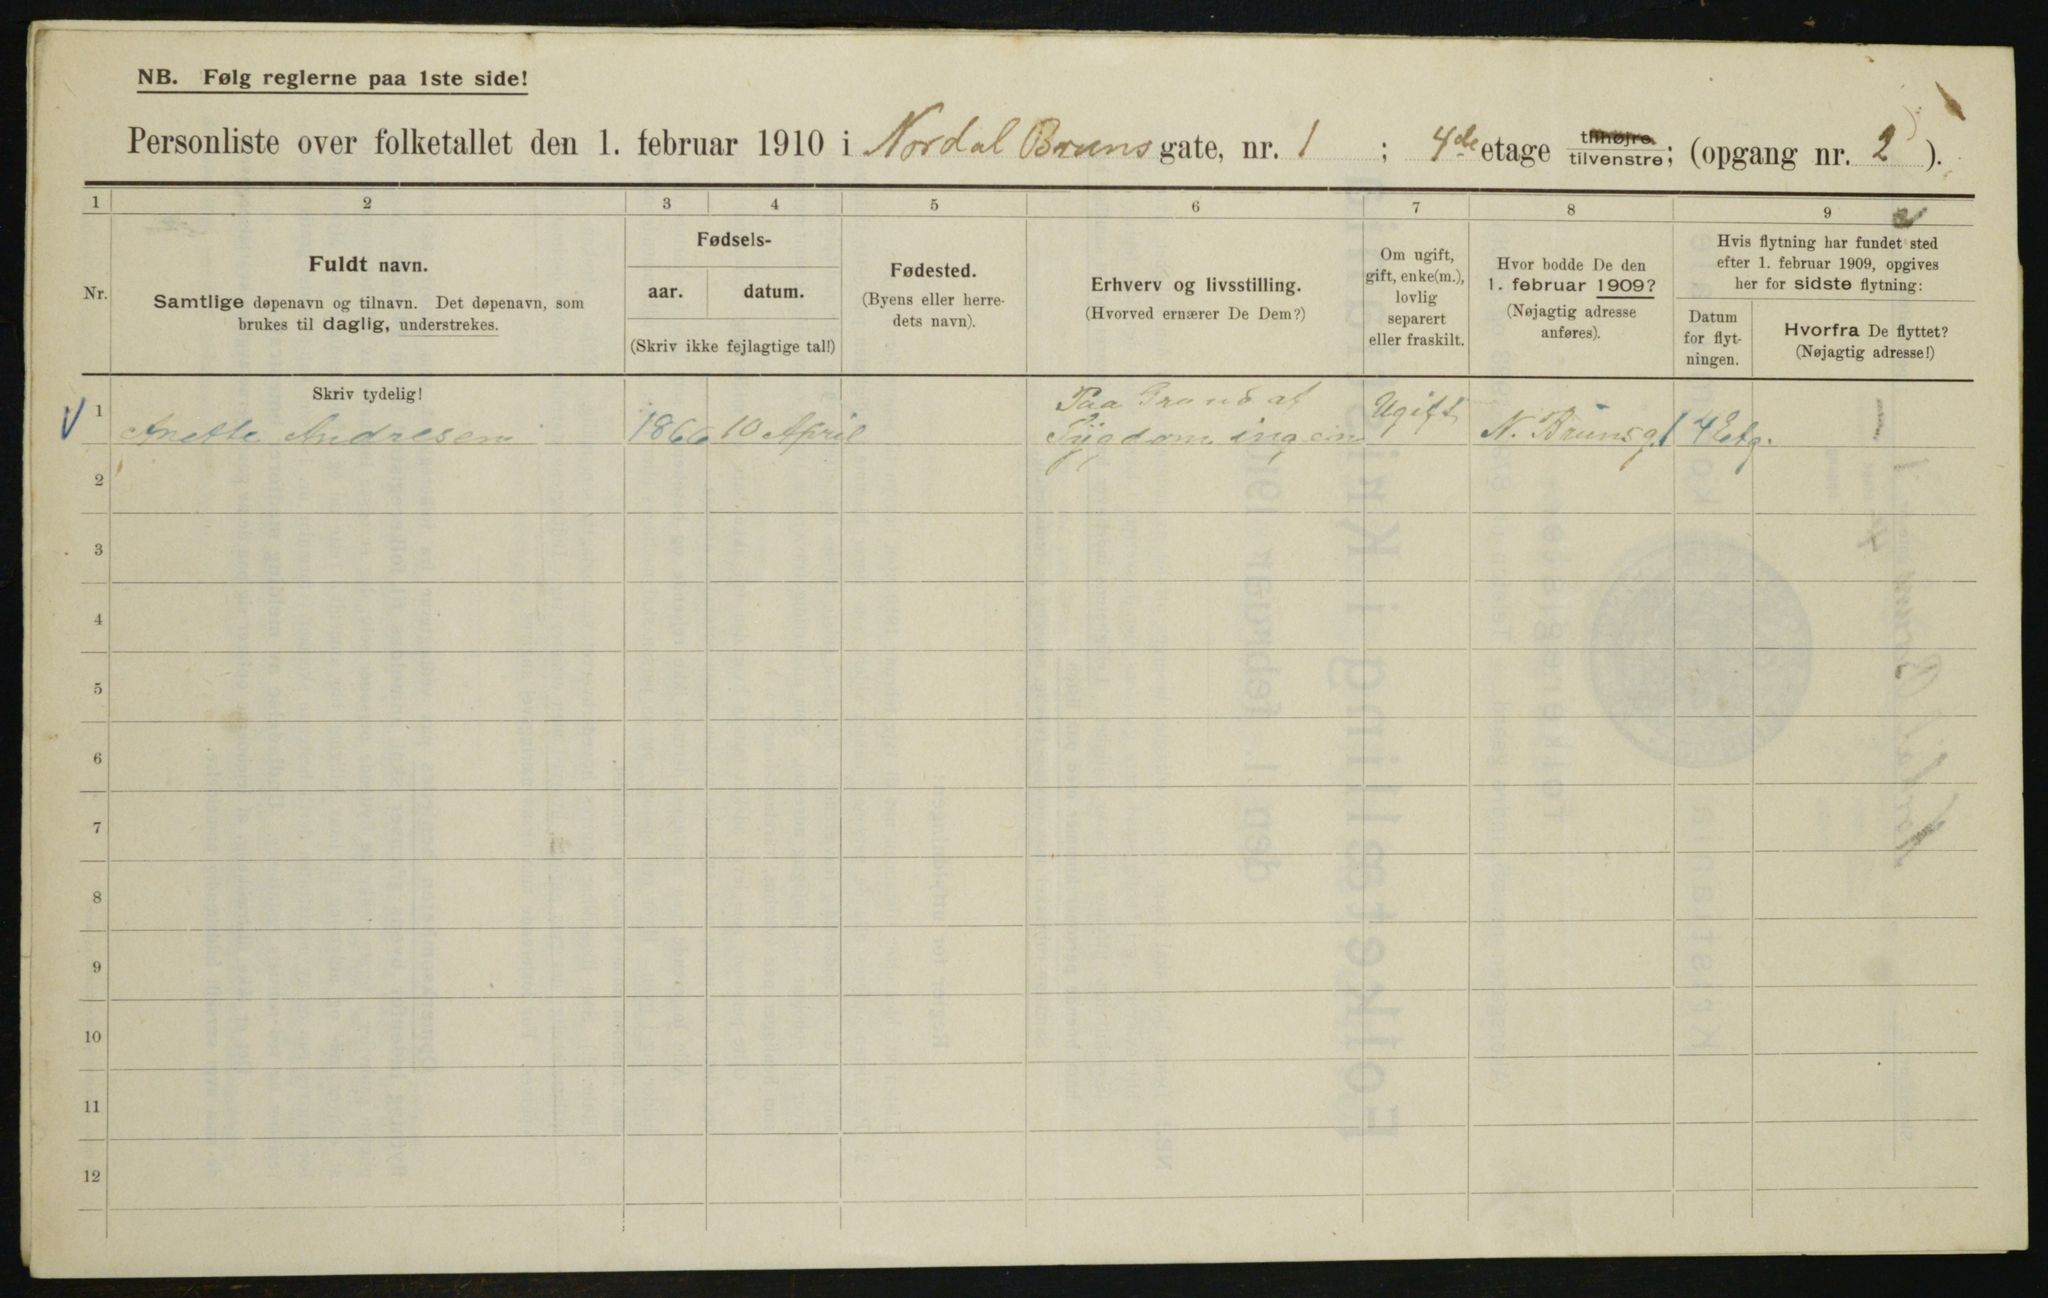 NB. Følg reglerne paa 1ste side!
Personliste over folketallet den 1. februar 1910 i Nordal Bruns gate, nr. 1 ; 4de etage tilhøjre tilvenstre; (opgang nr. 2).
1 2 3 4 5 6 7 8 9
Nr.
Fuldt navn.
Samtlige døpenavn og tilnavn. Det døpenavn, som
brukes til daglig, understrekes.
Fødsels-
aar. datum.
(Skriv ikke fejlagtige tal!)
Fødested.
(Byens eller herre-
dets navn).
Erhverv og livsstilling.
(Hvorved ernærer De Dem?)
Om ugift,
gift, enke(m.),
lovlig
separert
eller fraskilt.
Hvor bodde De den
1. februar 1909?
(Nøjagtig adresse
anføres).
Hvis flytning har fundet sted
efter 1. februar 1909, opgives
her for sidste flytning:
Datum
for flyt-
ningen.
Hvorfra De flyttet?
(Nøjagtig adresse!)
Skriv tydelig!
1 Anette Andresen 1866 10 April Paa Grund af Sygdom ingen Ugift N. Brunsg. 1 4 Etg.
2
3
4
5
6
7
8
9
10
11
12